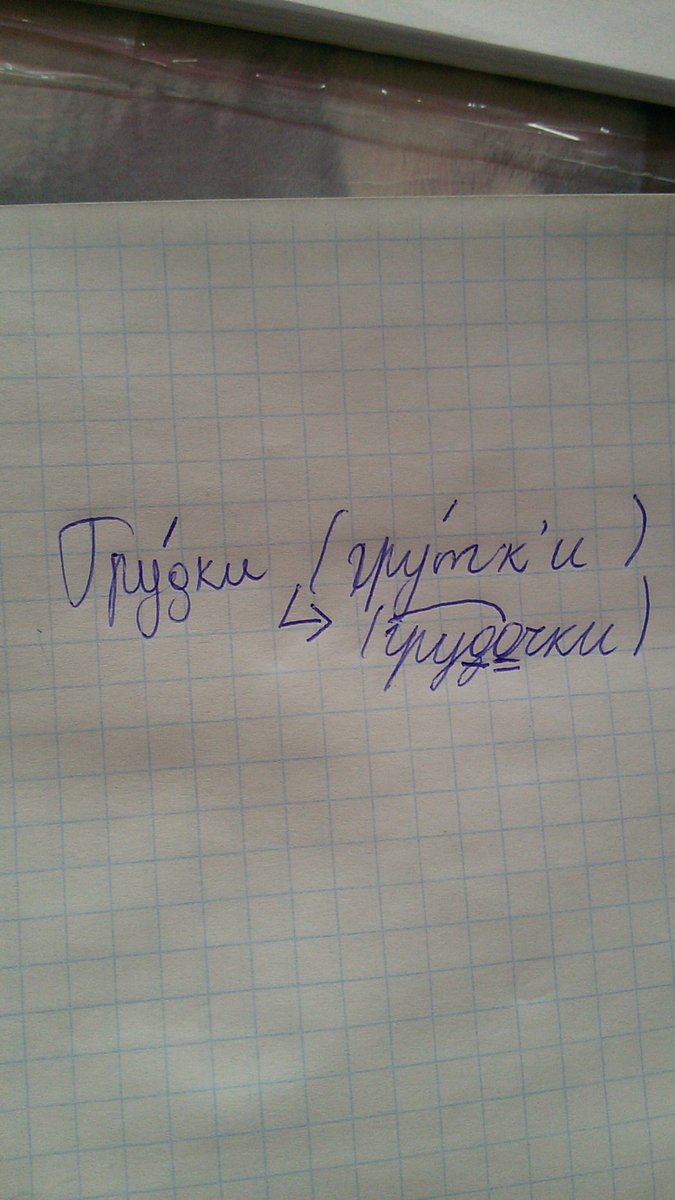 Гру́дки (гру́тк'и)
↳ (грудочки)